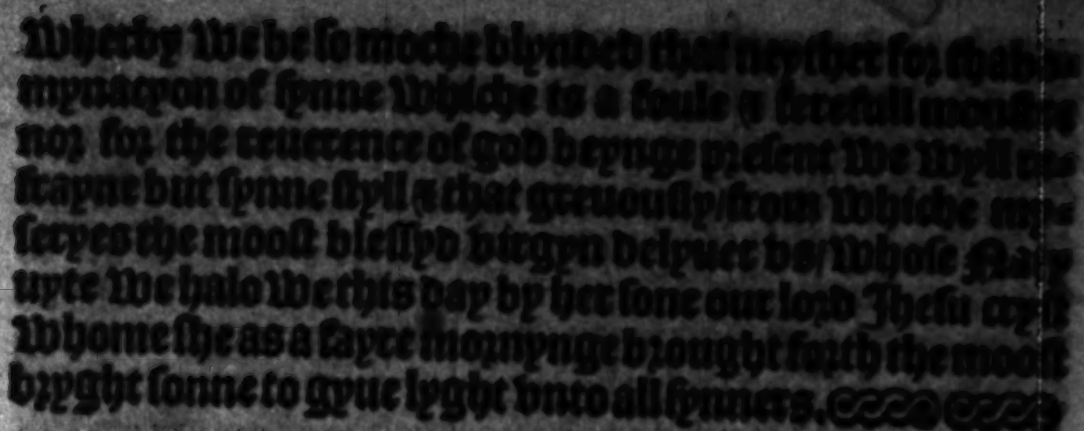 Wherby we be so moche blynded that neyther for thabho
mynacyon of synne whiche is a foule & ferefull monstre
noꝛ foꝛ the reuerence of god beynge pꝛesent we wyll re
frayne but synne styll & that greuously / from whiche my
seryes the moost blessyd virgyn delyuer vs / whose Naty
uyte we halowe this day by her sone our loꝛd Jhesu cryst
whome she as a fayre moꝛnynge bꝛought foꝛth the moost
bꝛyght sonne to gyue lyght vnto all synners.